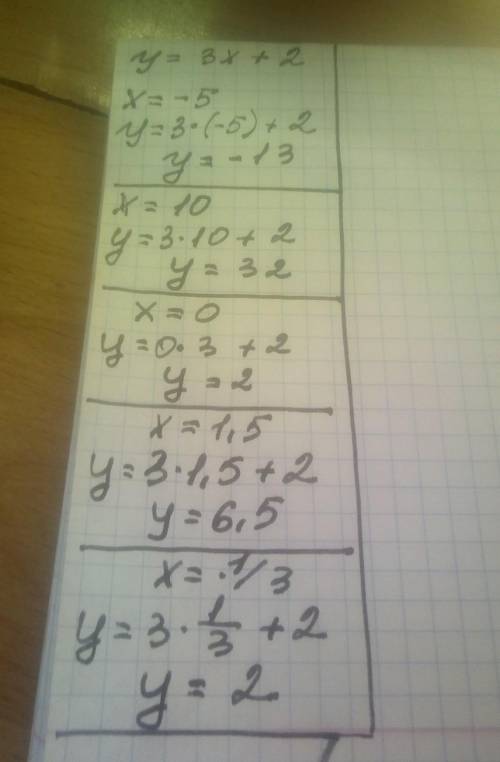 y = 3x + 2
x = -5
y = 3·(-5) + 2
y = -13
x = 10
y = 3·10 + 2
y = 32
x = 0
y = 0·3 + 2
y = 2
x = 1,5
y = 3·1,5 + 2
y = 6,5
x = ·1/3
y = 3·1/3 + 2
y = 2